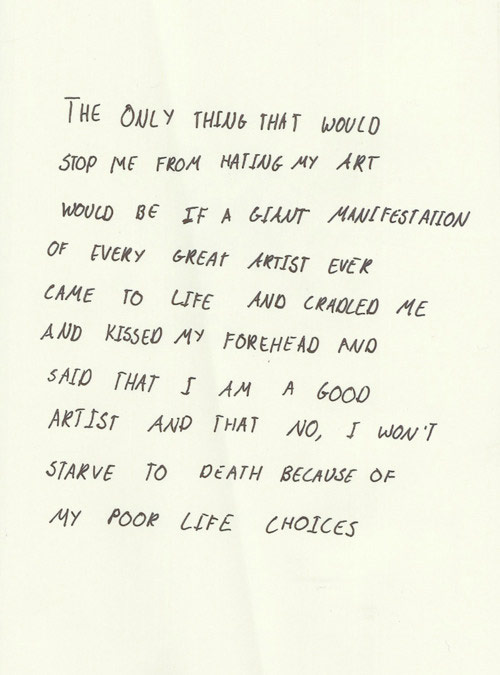 THE ONLY THING THAT WOULD
STOP ME FROM HATING MY ART
WOULD BE IF A GIANT MANIFESTATION
OF EVERY GREAT ARTIST EVER
CAME TO LIFE AND CRADLED ME
AND KISSED MY FOREHEAD AND
SAID THAT I AM A GOOD
ARTIST AND THAT NO, I WON'T
STARVE TO DEATH BECAUSE OF
MY POOR LIFE CHOICES